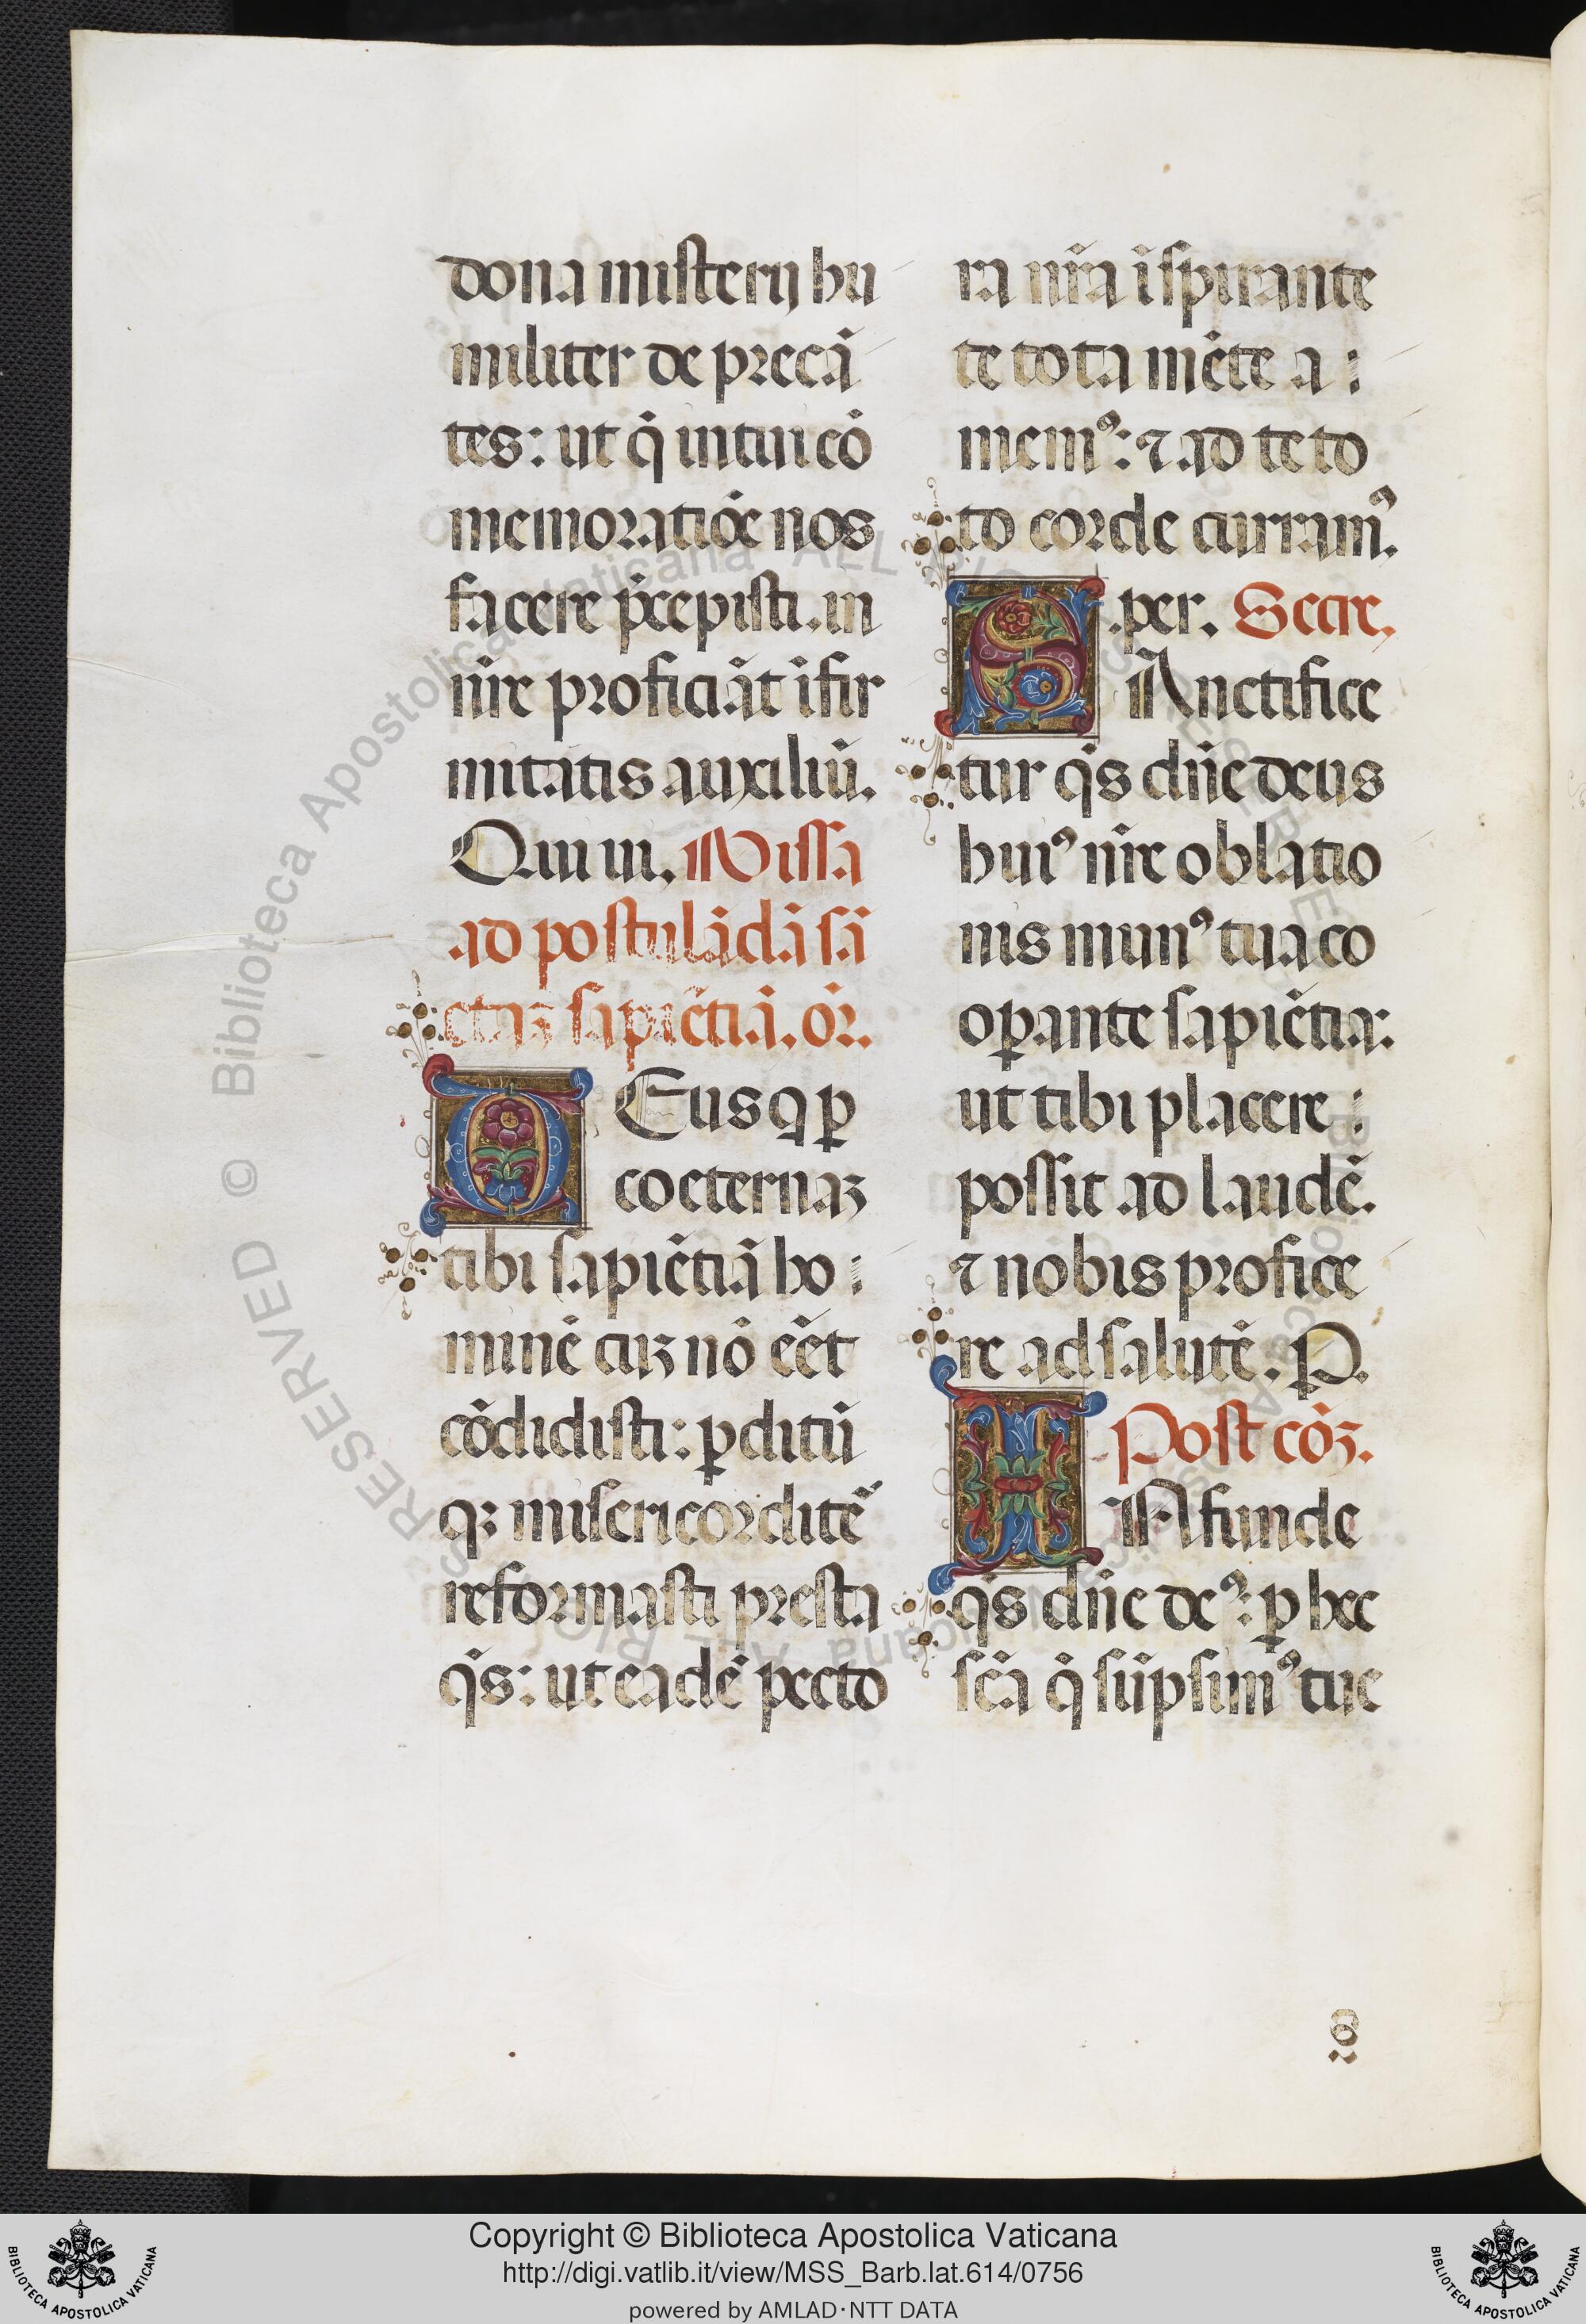 dona misterij hu
militer de precā
tes: ut q̄ in tui cō
memoratiōe nos
facere p̄cepisti. in
nr̄e proficiāt īfir
mitatis auxiliū.
Qui ui. Missa
ad postulādā sā
ctaꝫ sapiētiā. or̄.
DEus q ꝑ
coeternaꝫ
tibi sapiētiā ho
minē cuꝫ nō eēt
cōdidisti: ꝑditū
qꝫ misericorditē
reformasti presta
q̄s: ut eadē pecto
ra nr̄a īspirante
te tota mēte a
memꝰ: ⁊ ad te to
to corde curramꝰ.
per. Secre.
SAnctifice
tur q̄s dn̄e deus
huiꝰ nr̄e oblatio
nis munꝰ tua co
oꝑante sapiētia:
ut tibi placere
possit ad laudē.
⁊ nobis profice
re ad salutē. P.
Post cōꝫ.
INfunde
q̄s dn̄e deꝰ: ꝑ hec
sc̄a q̄ sūpsimꝰ tue
© Biblioteca Apostolica Vaticana ALL RIGHTS RESERVED
Copyright © Biblioteca Apostolica Vaticana
http://digi.vatlib.it/view/MSS_Barb.lat.614/0756
powered by AMLAD·NTT DATA
BIBLIOTECA APOSTOLICA VATICANA
BIBLIOTECA APOSTOLICA VATICANA